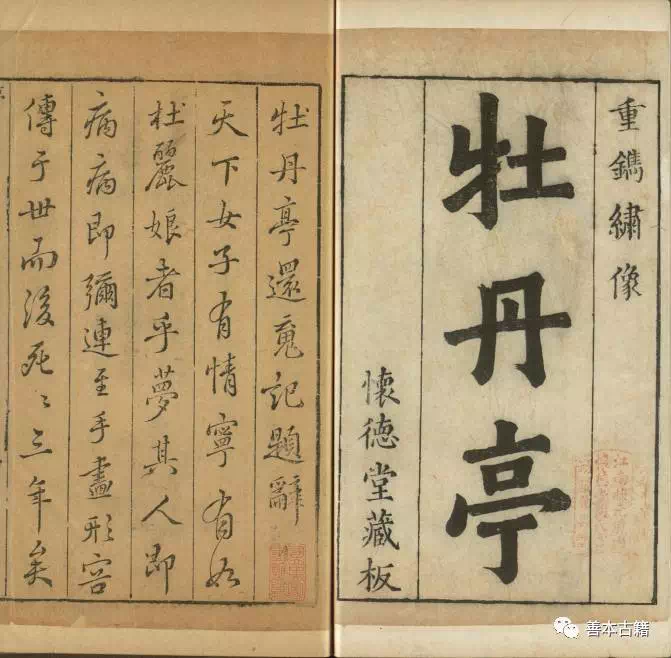 重鐫繡像
牡丹亭
懷德堂藏板
牡丹亭還魂記題辭
天下女子有情寧有如
杜麗娘者乎夢其人即
病病即彌連至手畫形容
傳于世而後死〻三年矣
善本古籍